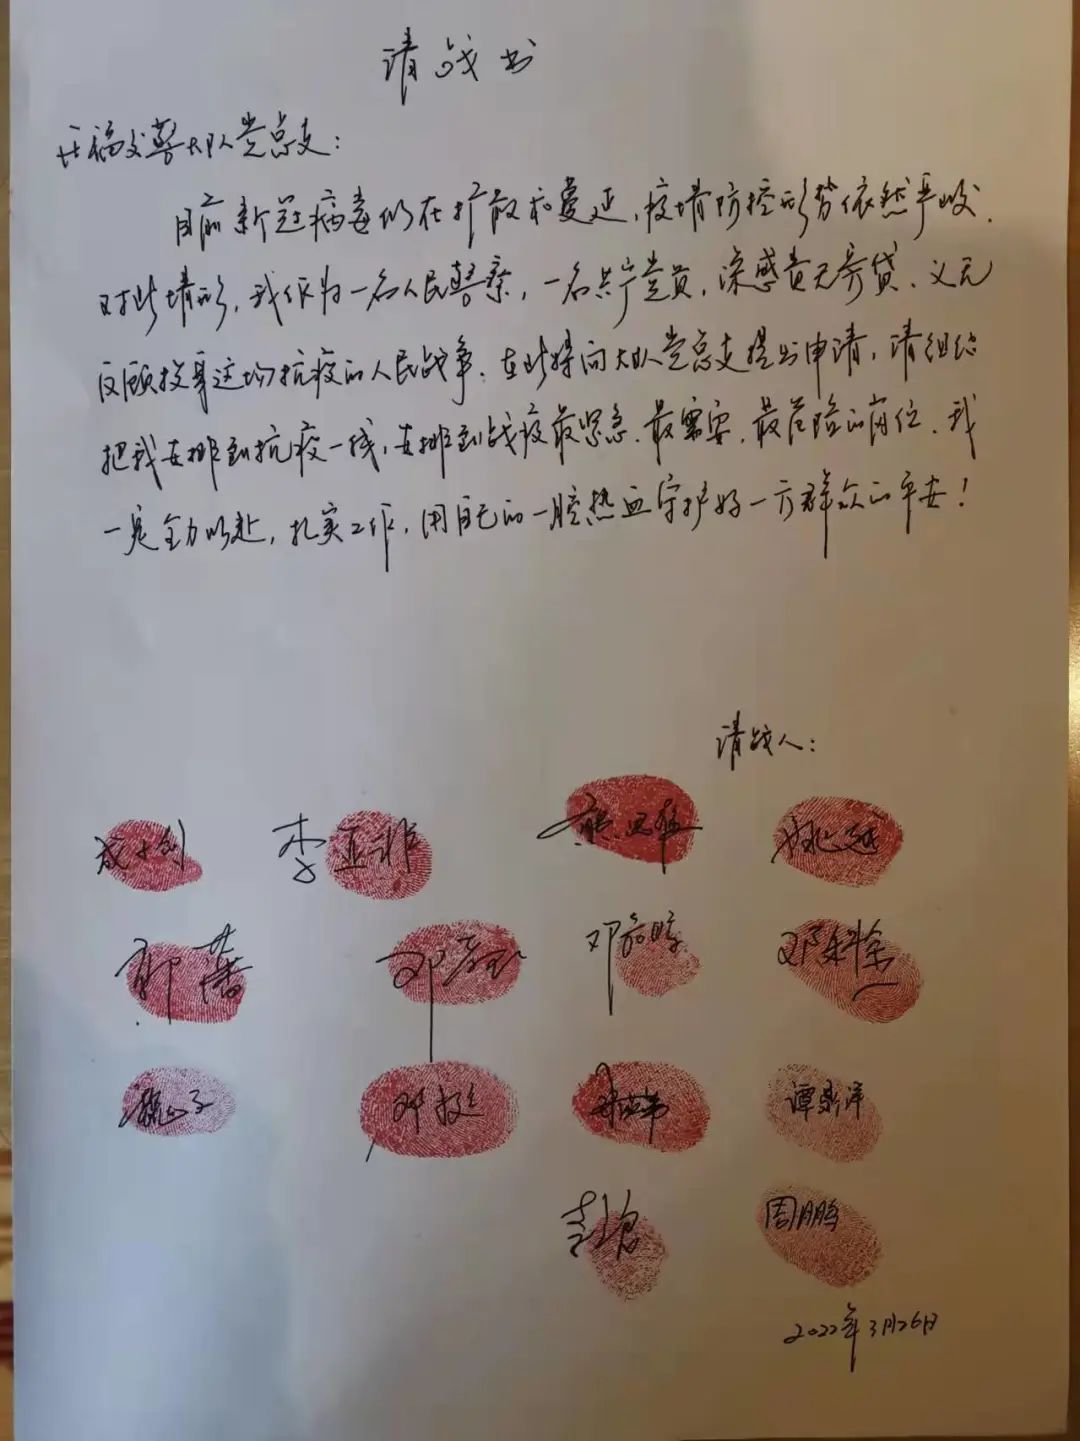 请战书
开福交警大队党总支：
目前新冠病毒仍在扩散和蔓延，疫情防控形势依然严峻。
对此情形，我作为一名人民警察，一名共产党员，深感责无旁贷、义无
反顾投身这场抗疫的人民战争。在此特向大队党总支提出申请，请组织
把我安排到抗疫一线，安排到战疫最紧急、最需要、最危险的岗位。我
一定全力以赴，扎实工作，用自己的一腔热血守护好一方群众的平安！
请战人：
李亚非 姚志超
郭蕾
邓毅 谭鼎泽
周鹏
2022年3月26日